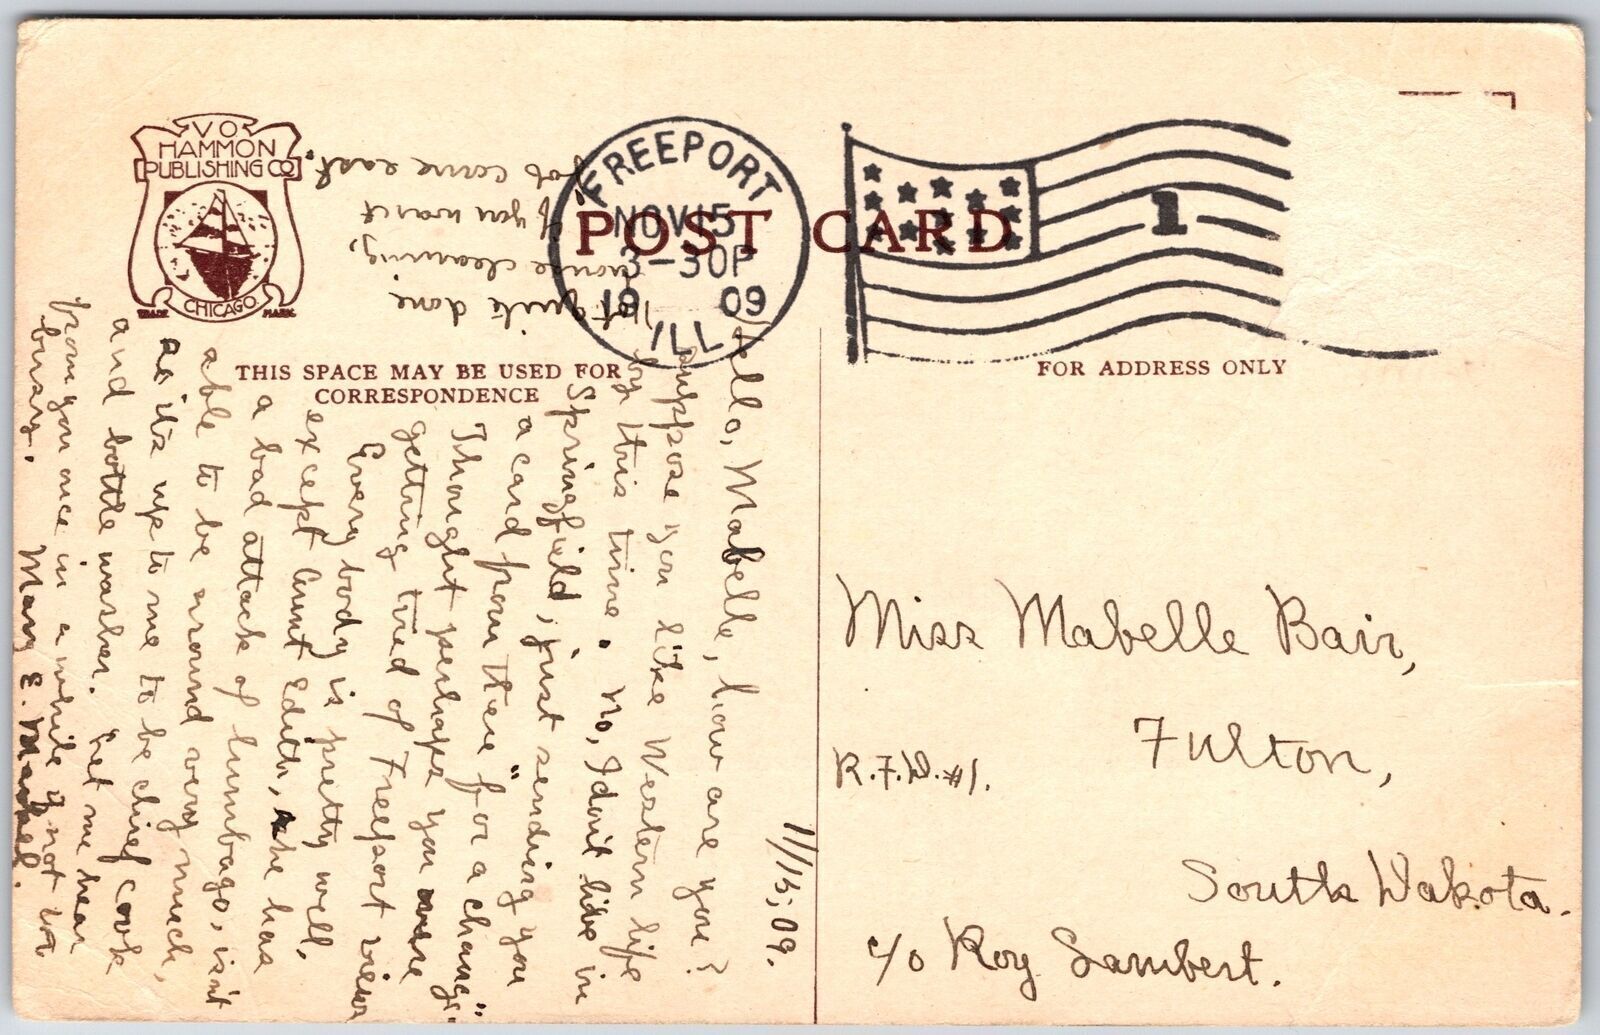 VO
HAMMON
PUBLISHING CO
CHICAGO.
TRADE MARK
POST CARD
FREEPORT
NOV 15
3-30P
19 09
ILL
1
THIS SPACE MAY BE USED FOR
CORRESPONDENCE
FOR ADDRESS ONLY
11/15, 09.
Hello, Mabelle, how are you?
suppose you like Western life
by this time. No, I don't live in
Springfield, just sending you
a card from there "for a change".
Thought perhaps you were
getting tired of Freeport views
Every body is pretty well,
except Aunt Edith, she has
a bad attack of lumbago, isn't
able to be around very much,
as it's up to me to be chief cook
and bottle washer. Let me hear
from you once in a while if not too
busy. Mary E.
Not quite done
house cleaning,
if you want
job come east.
Miss Mabelle Bair,
Fulton,
R.F.D. #1.
South Dakota.
c/o Roy Lambert.